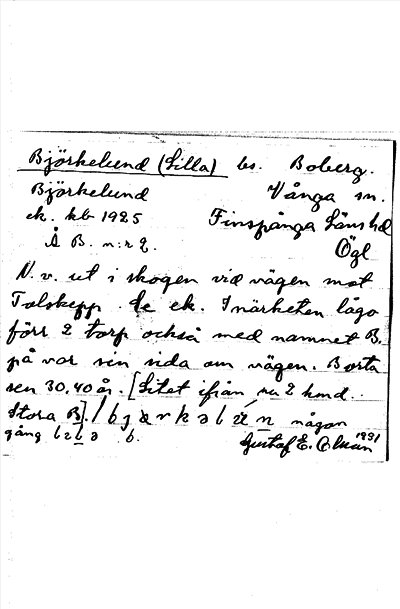 Björkelund (Lilla) bs. Boberg.
Björkelund Vånga sn.
ek. kb 1925 Finspånga Läns hd
Å B. n:r 2. Ögl
N. v. ut i skogen vid vägen mot
Tolskepp. Se ek. I närheten lågo
förr 2 torp också med namnet B.
på var sin sida om vägen. Borta
sen 30, 40 år. [Litet ifrån nu 2 hmd.
Stora B]. / någon
gång b. Gustaf E. Olsson 1931